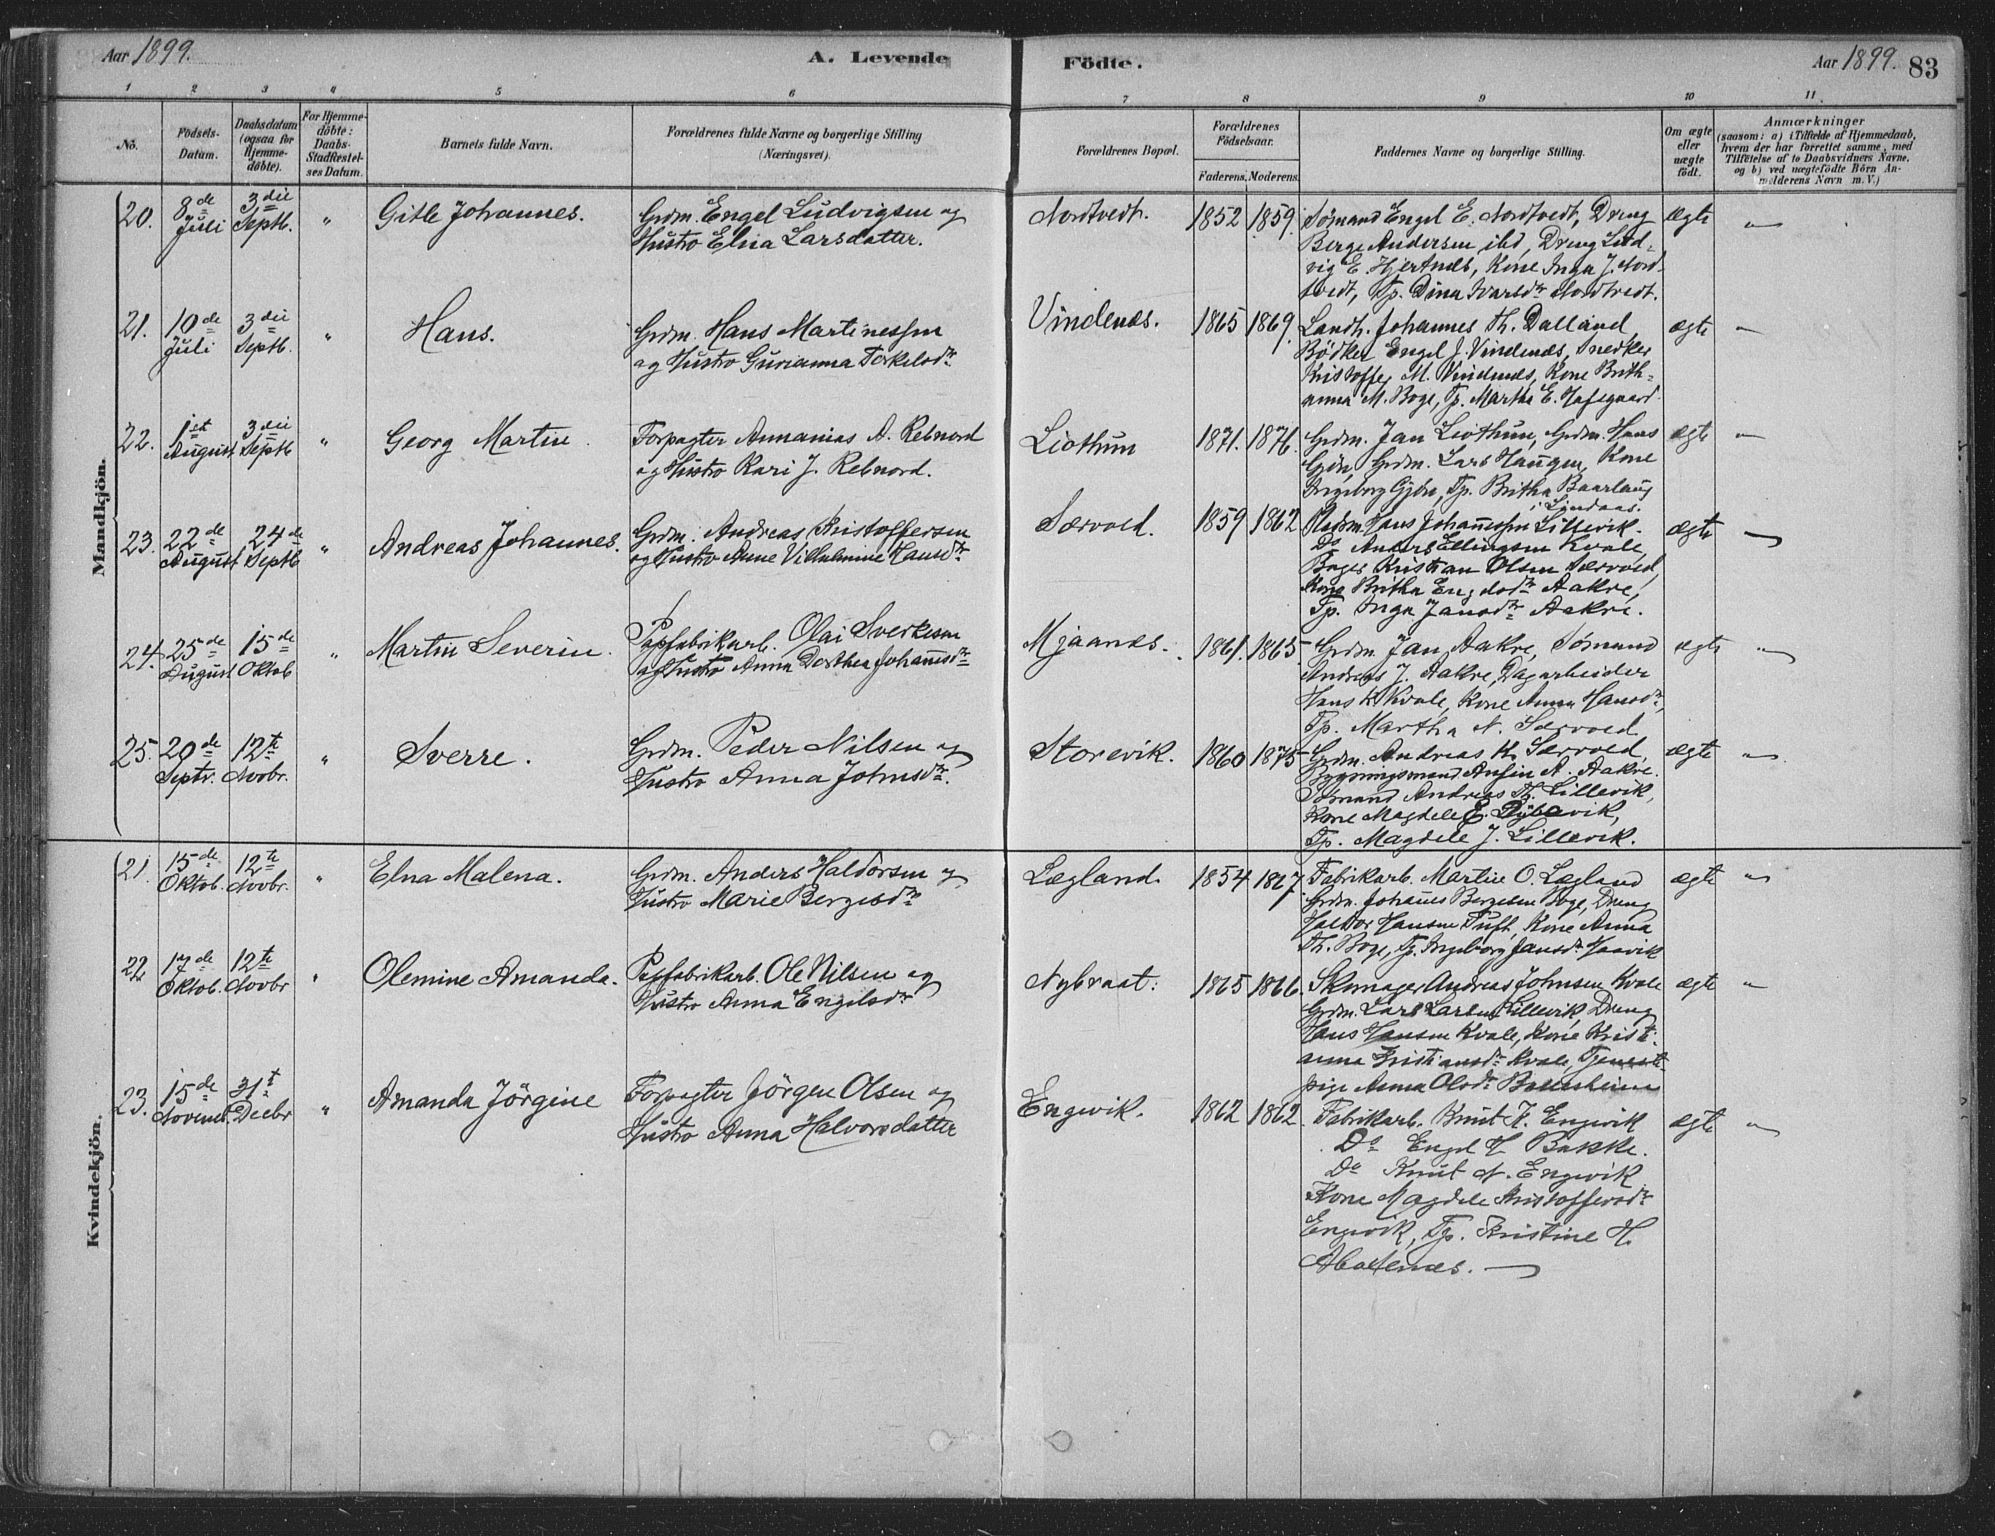 Aar 1899.
A. Levende
Födte.
Aar 1899.
83
1 2 3 4 5 6 7 8 9 10 11.
No.
Födsels-
Datum.
Daabsdatum
(ogsaa for
Hjemme-
döbte).
For Hjemme-
döbte:
Daabs-
Stadfæstel-
ses Datum.
Barnets fulde Navn.
Forældrenes fulde Navne og borgerlige Stilling
(Næringsvei).
Forældrenes Bopæl.
Forældrenes
Födselsaar.
Faderens. Moderens.
Faddernes Navne og borgerlige Stilling.
Om ægte
eller
uægte
födt.
Anmærkninger
(saasom: a) i Tilfælde af Hjemmedaab,
hvem der har forrettet samme, med
Tilföielse af to Daabsvidners Navne,
og b) ved uægtefödte Börn An-
melderens Navn m. V.)
Mandkjön.
20.
8de
Juli
3die
Septb.
"
Gitle Johannes.
Grdm. Engel Ludvigsen og
Hustro Elna Larsdatter.
Nordtvedt.
1852 1859.
Sømand Engel E. Nordtvedt, Dreng
Berge Andersen ibd, Dreng Lud-
vig E. Hjertnæs, Kone Inga J. Nord-
tvedt, Tp. Dina Ivarsdr Nordtvedt.
ægte
"
21.
10de
Juli
3die
Septb.
"
Hans.
Grdm. Hans Martinessen
og Hustro Gurianna Torkelsdr
Vindenæs.
1865 1869.
Landh. Johannes Th. Dalland,
Bødker Engel J. Vindenæs, Snedker
Kristoffer M. Vindenæs, Kone Brith-
anna M. Boge, Tp. Martha E.
ægte
"
22.
1st
August
3die
Septb
"
Georg Martin
Forpagter Annanias A. Rebnord
og Hustro Kari J. Rebnord.
Liothun
1871. 1876.
Grdm. Jan Liothun, Grdm. Hans
Gjøn, Grdm. Lars Haugen, Kone
Ingeborg Gjøn, Tp. Britha Baarlaug
i Lyndaas.
ægte
"
23.
22de
August
24de
Septb
"
Andreas Johannes.
Grdm. Andreas Kristoffersen
og Hustro Anne Vilhelmine Hansdr
Særvold.
1859 1862
Hans Johannessen Lillevik.
Do Anders Ellingsen Kvale,
Bager Kristian Olsen Særvold,
Kone Britha Engelsdr Aakre,
Tp. Inga Jansdr Aakre.
ægte
"
24.
25de
August
15de
Oktob
"
Martin Severin.
Papfabrikarb. Olai Sverkesen
og Hustro Anna Dorthea Johannesdr
Mjaanæs.
1861. 1865
Grdm. Jan Aakre, Sømand
Andreas J. Aakre, Dagarbeider
Hans K Kvale, Kone Anna Hansdr,
Tp. Martha N. Særvold.
ægte
"
25.
20de
Septr.
12te
Novbr.
"
Sverre.
Grdm. Peder Nilsen og
Hustro Anna Johnsdr.
Storevik.
1860 1875
Grdm. Andreas K. Særvold,
Bygningsmand Ansin A. Aakre.
Sømand Andreas Th. Lillevik,
Kone Magdele E. Dybevik,
Tp. Magdele J. Lillevik.
ægte
"
Kvindekjön.
21.
15de
Oktob.
12te
Novbr.
"
Elna Malena.
Grdm. Anders Haldorsen og
Hustro Marie Bergesdr
Lægland.
1854 1867.
Fabrikarb. Martin O. Lægland
Grdm. Johannes Bergesen Boge, Dreng
Haldor Hansen Tuft, Kone Anna
Th. Boge, Tp. Ingeborg Jansdr Haavik
ægte
"
22
17de
Oktob.
12te
Novbr
"
Olemine Amanda.
Papfabrikarb. Ole Nilsen og
Hustro Anna Engelsdr
Nybraat.
1865 1866.
Skomager Andreas Johnsen Kvale
Grdm. Lars Larsen Lillevik, Dreng
Hans Hansen Kvale, Kone Kristi-
anna Kristiansdr Kvale, Tjeneste-
pige Anna Olsdr
ægte
"
23.
15de
Novemb.
31t
Decbr
"
Amanda Jörgine
Forpagter Jörgen Olsen og
Hustro Anna Halvorsdatter
Engevik.
1862 1862
Fabrikarb. Knut K. Engevik
Do Engel H Bakke.
Do Knut N. Engevik
Kone Magdele Kristoffersdr
Engevik, Tp. Kristine H.
ægte
"